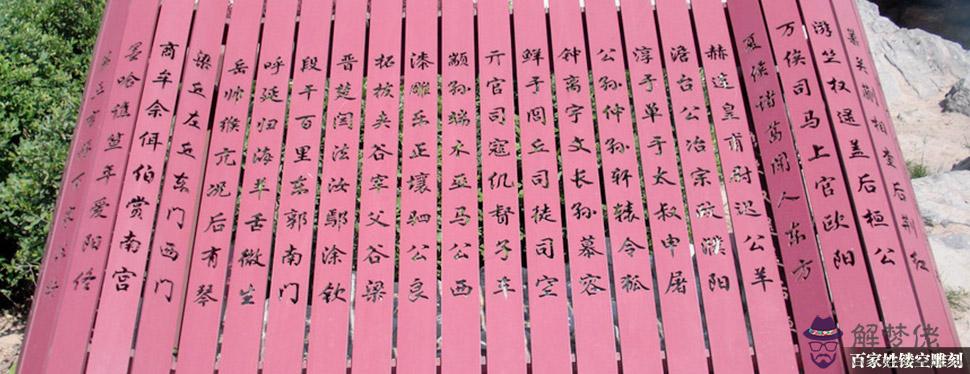 关蒯相查后荆红
游竺权逯盖后桓公
万俟司马上官欧阳
夏侯诸葛闻人东方
赫连皇甫尉迟公羊
澹台公冶宗政濮阳
淳于单于太叔申屠
公孙仲孙轩辕令狐
钟离宇文长孙慕容
鲜于闾丘司徒司空
亓官司寇仉督子车
颛孙端木巫马公西
漆雕乐正壤驷公良
拓拔夹谷宰父谷梁
晋楚闫法汝鄢涂钦
段干百里东郭南门
呼延归海羊舌微生
岳帅缑亢况后有琴
梁丘左丘东门西门
商牟佘佴伯赏南宫
墨哈谯笪年爱阳佟
解梦佬
百家姓镂空雕刻